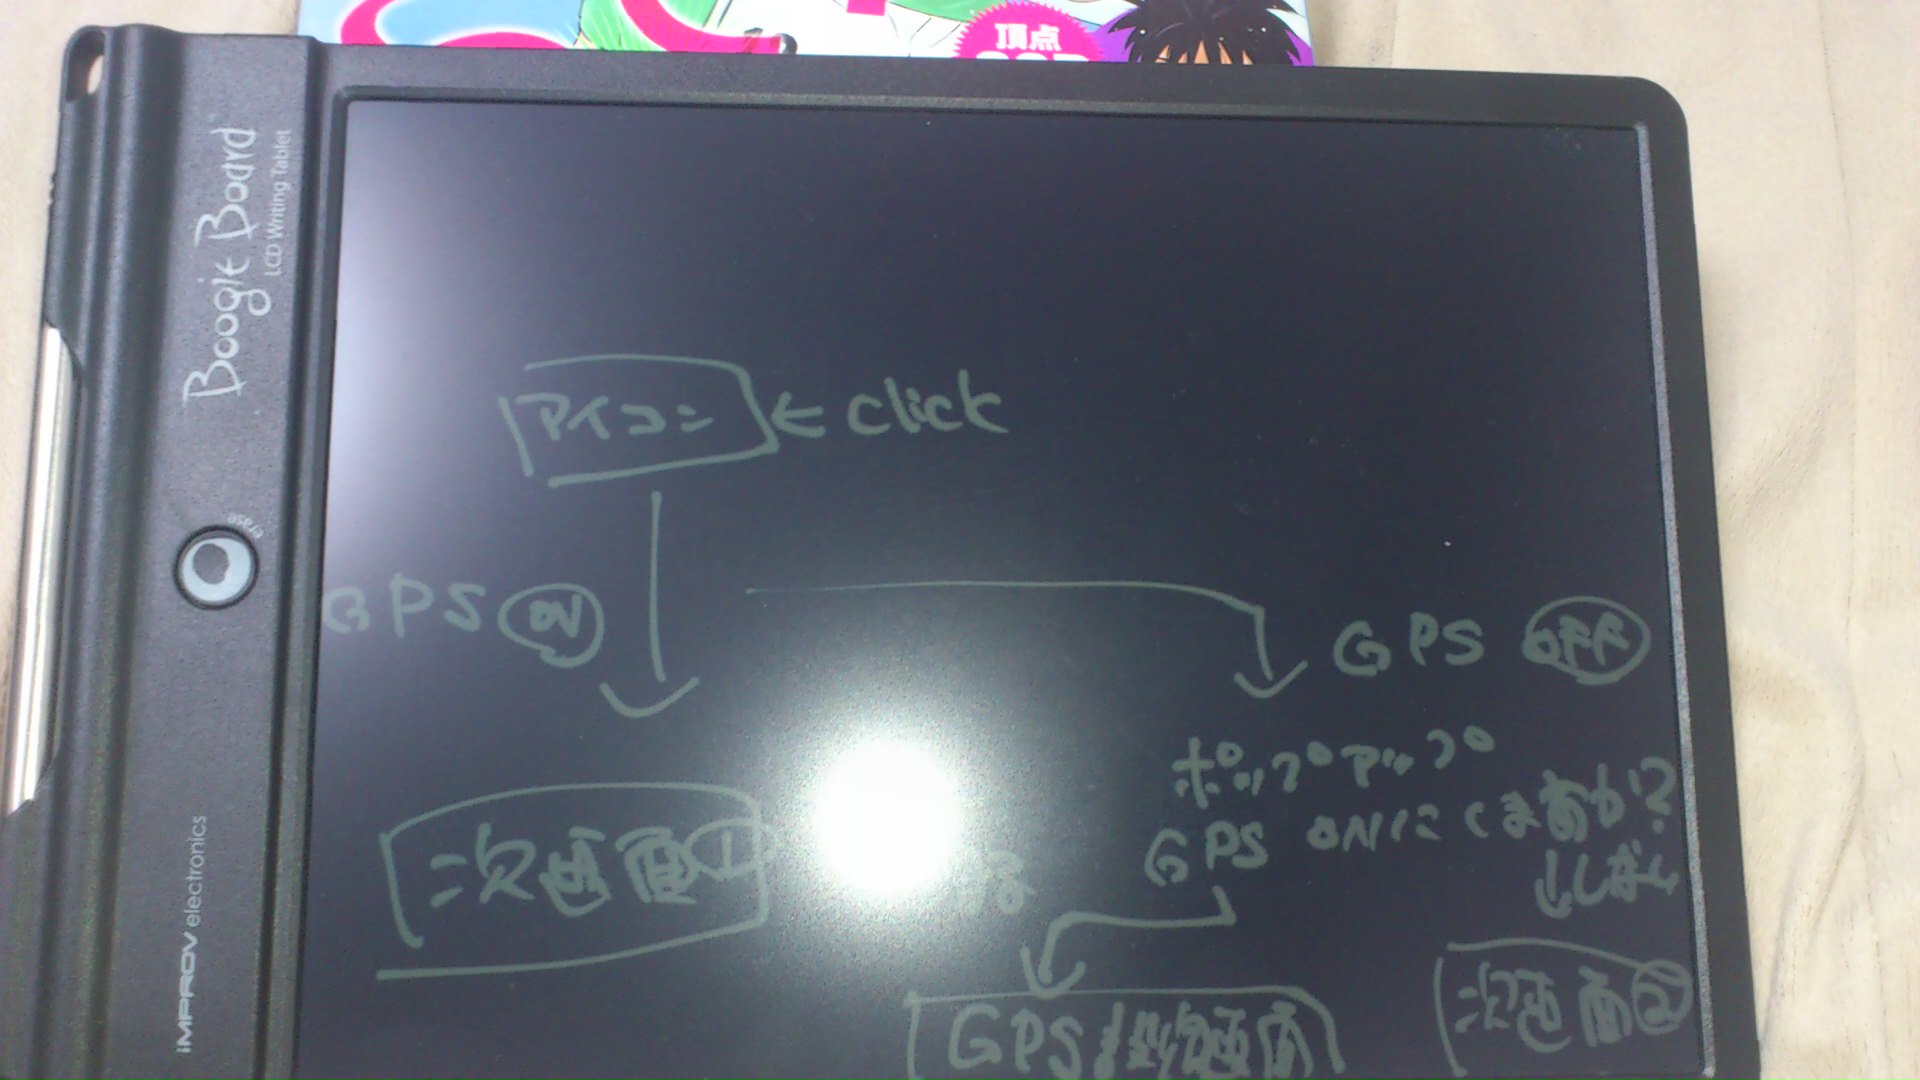 頂点
Boogie Board
LCD Writing Tablet
erase
iMPROV electronics
アイコン ← click
GPS ON
GPS OFF
ポップアップ
GPS ONにしますか?
次画面①
する
↓しない
GPS 画面
次画面②